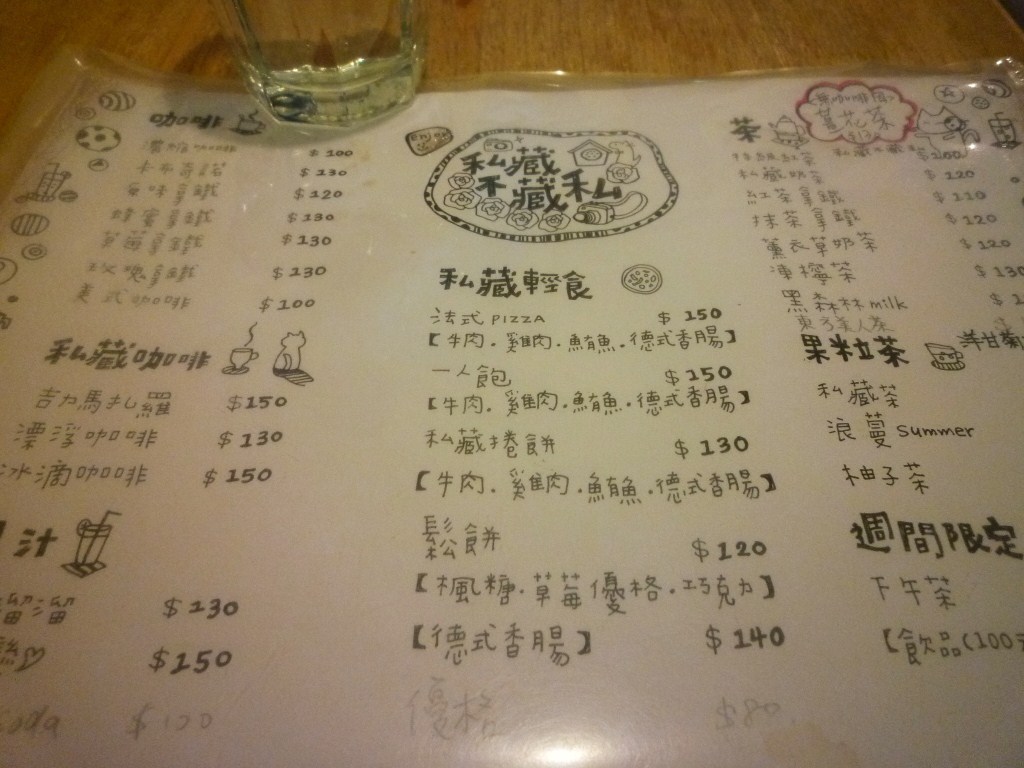 咖啡
濃縮咖啡 $100
卡布奇諾 $130
$120
蜂蜜拿鐵 $130
拿鐵 $130
玫瑰拿鐵 $130
美式咖啡 $100
私藏咖啡
吉力馬扎羅 $150
漂浮咖啡 $130
冰滴咖啡 $150
汁
溜溜 $130
$150
soda $120
私藏
不藏私
私藏輕食
法式PIZZA $150
【牛肉.雞肉.鮪魚.德式香腸】
一人飽 $150
【牛肉.雞肉.鮪魚.德式香腸】
私藏捲餅 $130
【牛肉.雞肉.鮪魚.德式香腸】
鬆餅 $120
【楓糖.草莓優格.巧克力】
【德式香腸】 $140
優格 $80
茶
(無咖啡因)
紅茶 $100
私藏奶茶 $120
紅茶拿鐵 $110
抹茶拿鐵 $120
薰衣草奶茶 $120
凍檸茶 $130
黑森林milk
東方美人茶
果粒茶
洋甘菊
私藏茶
浪蔓summer
柚子茶
週間限定
下午茶
【飲品(100